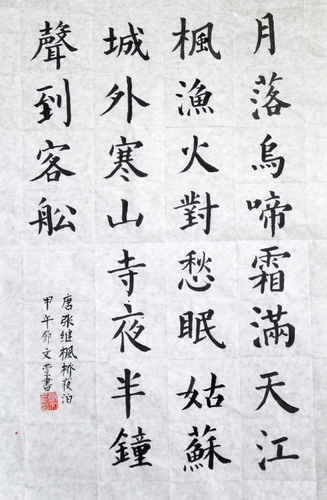 月落烏啼霜滿天江
楓漁火對愁眠姑蘇
城外寒山寺夜半鐘
聲到客船
唐张继枫桥夜泊
甲午邓文书